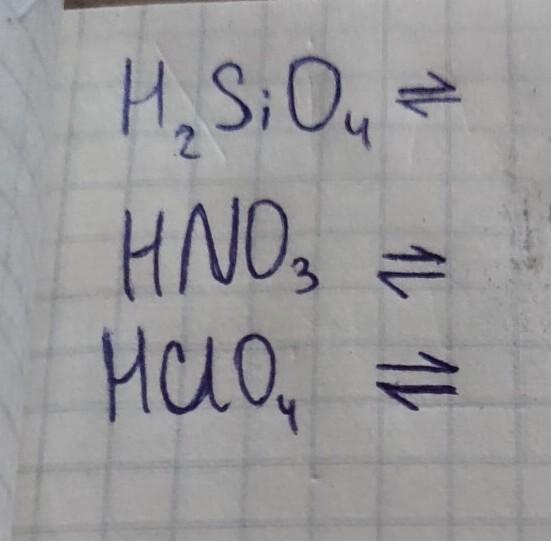 H₂SiO₄ ⇌
HNO₃ ⇌
HClO₄ ⇌